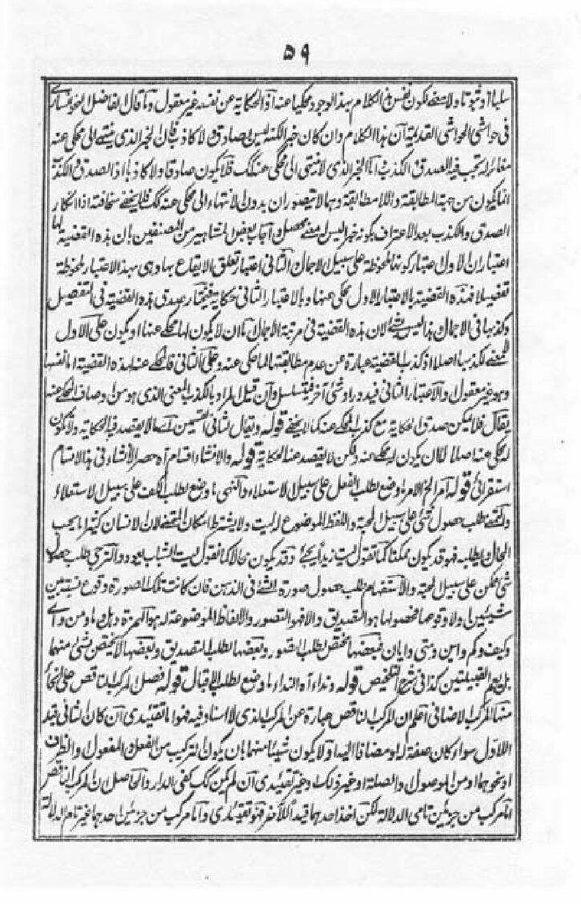 ۵۹
سلبا او ثبوتا ولا معنى لكون نفس هذا الكلام بهذا الوجود محكيا عنه اذ الحكاية عن نفسه غير معقول وما قال الفاضل الخوانساري
فى حواشى الحواشى القديمة ان هذا الكلام وان كان خبرا لكنه ليس بصادق ولا كاذب فان الخبر الذى ينتهى الى محكى عنه
مغائر له يجب فيه الصدق والكذب اما الخبر الذى لا ينتهى الى محكى عنه كك فلا يكون صادقا ولا كاذبا اذ الصدق والكذب
انما يكون من جهة المطابقة واللا مطابقة وهما لا يتصوران بدون الانتهاء الى محكى عنه كك فلا يخفى سخافته اذ انكار
الصدق والكذب بعد الاعتراف بكونه خبرا ليس معنى محصل واجاب بعض المشاهير من المصنفين بان هذه القضية لها
اعتباران الاول اعتبار كونها ملحوظة على سبيل الاجمال الثانى اعتبار تعلق الايقاع بها وهى بهذا الاعتبار ملحوظة
تفصيلا فهذه القضية بالاعتبار الاول محكى عنها وبالاعتبار الثانى حكاية فيختار صدق هذه القضية فى التفصيل
وكذبها فى الاجمال هذا ليس بشئ لان هذه القضية فى مرتبة الاجمال اما ان لا يكون لها محكى عنها او يكون على الاول
لا معنى لكذبها اصلا اذ كذب القضية عبارة عن عدم مطابقتها لما حكى عنه وعلى الثانى فالمحكى عنه لهذه القضية اما نفسها
وهو غير معقول او الاعتبار الثانى فيدور او شئ آخر فيتسلسل وان قيل المراد بالكذب المعنى الذى هو من اوصاف المحكى عنه
يقال فلا يمكن صدق الحكاية مع كذب المحكى عنه كما لا يخفى قوله ويقال لثانى القسمين آه ما لا يقصد فيه الحكاية ولا يكون
له محكى عنه اصلا او كان يكون له محكى عنه ولكن لا يقصد عنه الحكاية قوله والانشاء اقسام آه حصر الانشاء فى هذا الاقسام
استقرائى قوله امر الخ الامر ما وضع لطلب الفعل على سبيل الاستعلاء والنهى ما وضع لطلب الكف على سبيل الاستعلاء
والتمنى طلب حصول شئ على سبيل المحبة واللفظ الموضوع له ليت ولا يشترط امكان المتمنى لان الانسان كثيرا ما يحب
المحال ويطلبه فهو قد يكون ممكنا كما تقول ليت زيدا يجئ وقد يكون محالا كما تقول ليت الشباب يعود والترجى طلب حصول
شئ ممكن على سبيل المحبة والاستفهام طلب حصول صورة الشئ فى الذهن فان كانت تلك الصورة وقوع نسبة بين
شيئين او لا وقوعها فحصولها هو التصديق والا فهو التصور والالفاظ الموضوعة له هو الهمزة وهل وما ومن واى
وكيف وكم واين ومتى وايان فبعضها مختص بطلب التصور وبعضها لطلب التصديق وبعضها لا يختص بشئ منهما
بل يعم القبيلتين كذا فى شرح التلخيص قوله ونداء آه النداء ما وضع لطلب الاقبال قوله فصل المركب الناقص على انحاء
منها المركب الاضافى اعلم ان المركب الناقص عبارة عن المركب الذى لا اسناد فيه فهو اما تقييدى ان كان الثانى قيد
اللاول سواء كان صفة له او مضافا اليه او لا يكون شيئا منهما بان يكون التركيب من الفعل والمفعول والظرف
او نحوهما او من الموصول والصلة او غير ذلك وغير تقييدى ان لم يكن كك كفى الدار والحاصل ان المركب الناقص
اما مركب من جزئين تامى الدلالة لكن اخذ احدهما قيدا للآخر فهو تقييدى واما مركب من جزئين احدهما غير تام الدلالة